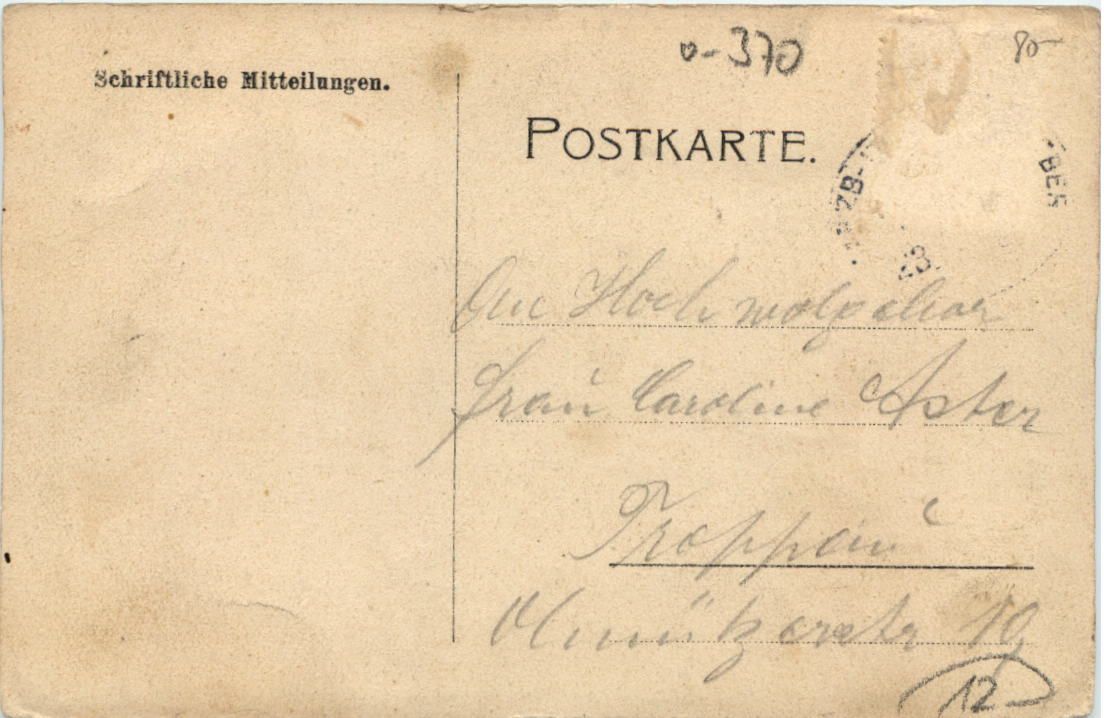 Schriftliche Mitteilungen.
v-370
80-
POSTKARTE.
ZB-
BER
23
An Hoch
Frau Caroline Aster
Troppau
Olmützerstr 19
12-